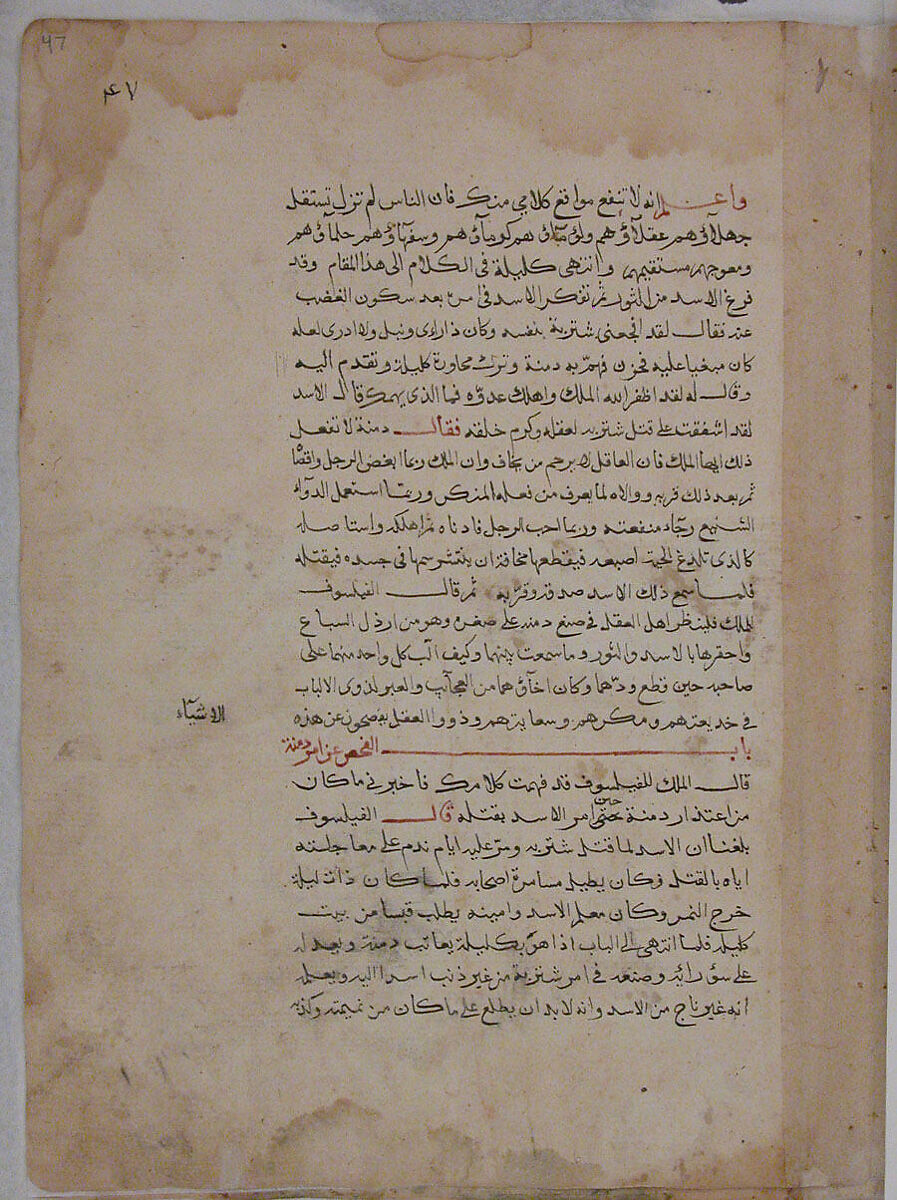 47
٤٧
واعلم انه لا تنفع مواقع كلامي منك فان الناس لم تزل تستثقل
جهلاؤهم عقلاؤهم ولؤماؤهم كرماؤهم وسفهاؤهم حلماؤهم
ومعوجهم مستقيمهم وانتهى كليلة في الكلام الى هذا المقام وقد
فرغ الاسد من الثور ثم تفكر الاسد في امره بعد سكون الغضب
عنه فقال لقد افجعني شتربة بنفسه وكان ذا راى ونبل ولا ادرى لعله
كان مبغيا عليه فحزن فهم به دمنة وترك محاورة كليلة وتقدم اليه
وقال له لقد اظفر الله الملك واهلك عدوه فما الذي يهمك قال الاسد
لقد اشفقت على قتل شتربه لعقله وكرم خلقه فقال دمنة لا تفعل
ذلك ايها الملك فان العاقل لا يرحم من يخاف وان الملك ربما ابغض الرجل واقصاه
ثم بعد ذلك قربه ووالاه لما يعرف من فعله المنكر وربما استعمل الدواء
الشنيع رجاء منفعته وربما احب الرجل فادناه ثم اهلكه واستاصله
كالذي تلدغ الحية اصبعه فيقطعها مخافة ان ينتشر سمها في جسده فيقتله
فلما سمع ذلك الاسد صدقه وقربه ثم قال الفيلسوف
للملك فلينظر اهل العقل في صنع دمنه على صغره وهو من ارذل السباع
واحقرها بالاسد والثور وما سمعت بينهما وكيف الب كل واحد منهما على
صاحبه حين قطع ودهما وكان اخآؤهما من العجآيب والعبر لذوى الالباب
في خديعتهم ومكرهم وسعايتهم وذووا العقل يفحصون عن هذه
الاشيآء
باب الفحص عن امر دمنة
قال الملك للفيلسوف قد فهمت كلامك فاخبرني ما كان
من اعتذار دمنة حتى حين امر الاسد بقتله قال الفيلسوف
بلغنا ان الاسد لما قتل شتربه ومر عليه ايام ندم على معاجلته
اياه بالقتل وكان يطيل مسامرة اصحابه فلما كان ذات ليلة
خرج النمر وكان معلم الاسد وامينه يطلب قبسا من بيت
كليلة فلما انتهى الى الباب اذا هو بكليلة يعاتب دمنة ويعذله
على سؤ رائه وصنعه في امر شتربة من غير ذنب اسدا اليه ويعلمه
انه غير ناج من الاسد وانه لا بد ان يطلع على ما كان من نميمته وكذبه